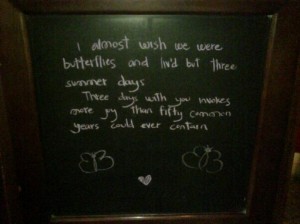 I almost wish we were
butterflies and liv'd but three
summer days
Three days with you makes
more joy than fifty common
years could ever contain